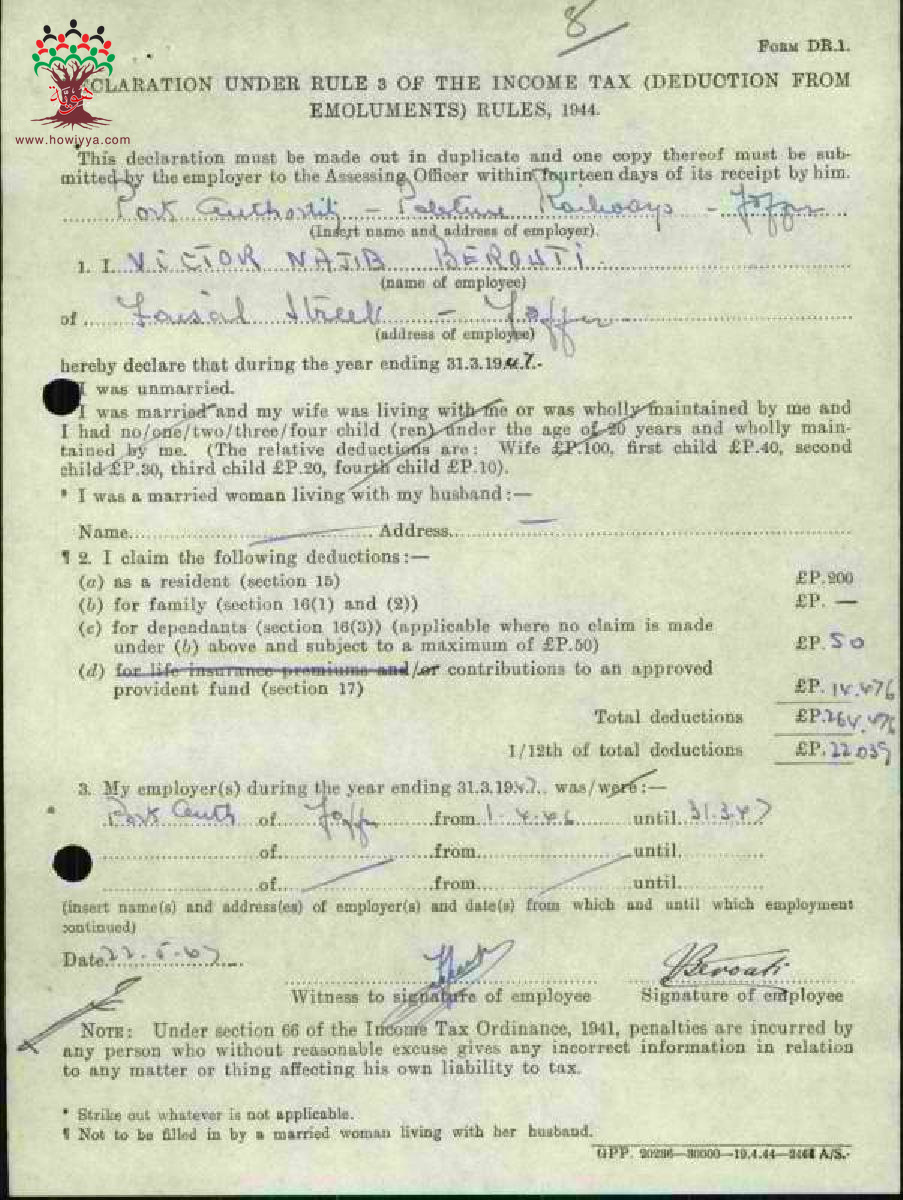 8
FORM DR.1.
CLARATION UNDER RULE 3 OF THE INCOME TAX (DEDUCTION FROM
EMOLUMENTS) RULES, 1944.
www.howiyya.com
This declaration must be made out in duplicate and one copy thereof must be sub-
mitted by the employer to the Assessing Officer within fourteen days of its receipt by him.
Port Authority – Palestine Railways – Jaffa
(Insert name and address of employer).
1. I VICTOR NAJIB BEROUTI
(name of employee)
of Faisal Street – Jaffa
(address of employee)
hereby declare that during the year ending 31.3.1947.
I was unmarried.
I was married and my wife was living with me or was wholly maintained by me and
I had no/one/two/three/four child (ren) under the age of 20 years and wholly main-
tained by me. (The relative deductions are: Wife £P.100, first child £P.40, second
child £P.30, third child £P.20, fourth child £P.10).
* I was a married woman living with my husband:—
Name Address
¶ 2. I claim the following deductions:—
(a) as a resident (section 15) £P.200
(b) for family (section 16(1) and (2)) £P. —
(c) for dependants (section 16(3)) (applicable where no claim is made
under (b) above and subject to a maximum of £P.50) £P. 50
(d) for life insurance premiums and/or contributions to an approved
provident fund (section 17) £P. 14.476
Total deductions £P.264.476
1/12th of total deductions £P.22.039
3. My employer(s) during the year ending 31.3.1947. was/were:—
Port Auth of Jaffa from 1-4-46 until 31.3.47
of from until
of from until
(insert name(s) and address(es) of employer(s) and date(s) from which and until which employment
continued)
Date 22-5-47
VBerouti
Witness to signature of employee Signature of employee
NOTE: Under section 66 of the Income Tax Ordinance, 1941, penalties are incurred by
any person who without reasonable excuse gives any incorrect information in relation
to any matter or thing affecting his own liability to tax.
* Strike out whatever is not applicable.
¶ Not to be filled in by a married woman living with her husband.
GPP. 20236—30000—19.4.44—2461 A/S.